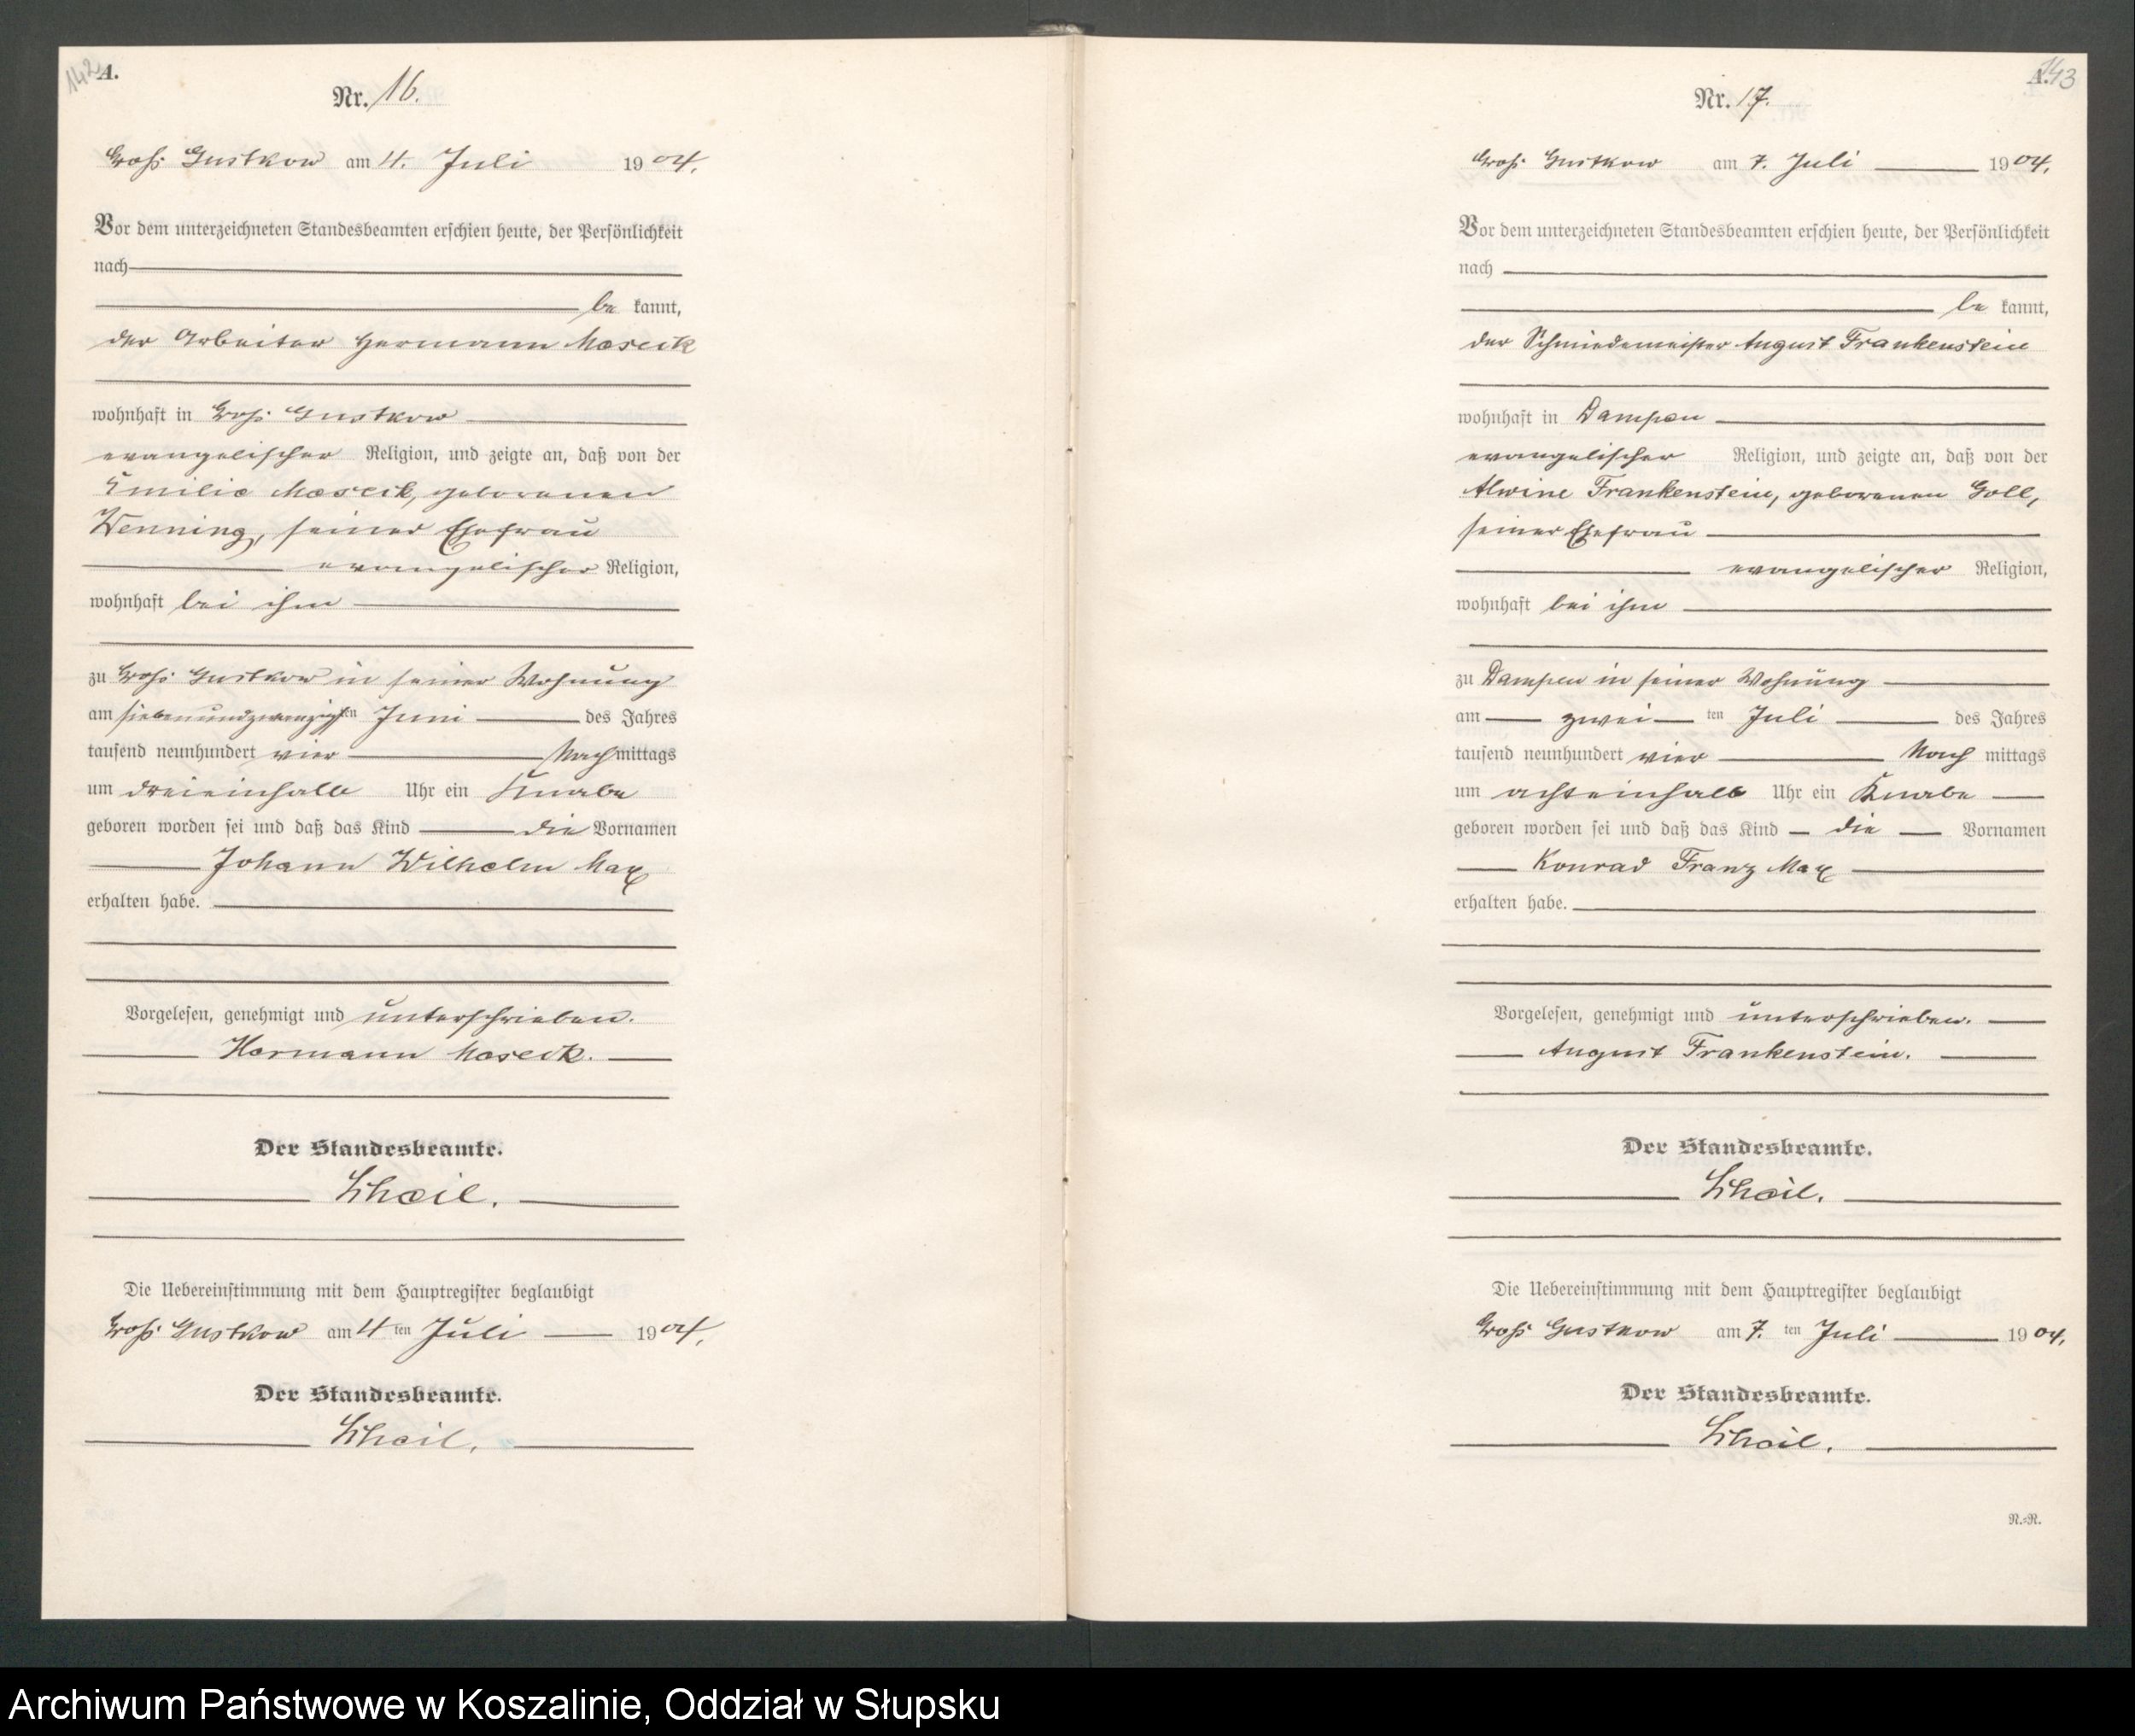 142
A.
Nr. 16.
Groß Gustkow am 4. Juli 1904.
Vor dem unterzeichneten Standesbeamten erschien heute, der Persönlichkeit
nach
be kannt,
der Arbeiter Hermann Maseck
wohnhaft in Groß Gustkow
evangelischer Religion, und zeigte an, daß von der
Emilie Maseck, geborenen
Wenning, seiner Ehefrau
evangelischer Religion,
wohnhaft bei ihm
zu Groß Gustkow in seiner Wohnung
am siebenundzwanzigsten Juni des Jahres
tausend neunhundert vier Nachmittags
um dreieinhalb Uhr ein Knabe
geboren worden sei und daß das Kind die Vornamen
Johann Wilhelm Max
erhalten habe.
Vorgelesen, genehmigt und unterschrieben.
Hermann Maseck.
Der Standesbeamte.
Die Uebereinstimmung mit dem Hauptregister beglaubigt
Groß Gustkow am 4 ten Juli 1904.
Der Standesbeamte.
143
A.
Nr. 17.
Groß Gustkow am 7. Juli 1904.
Vor dem unterzeichneten Standesbeamten erschien heute, der Persönlichkeit
nach
be kannt,
der Schmiedemeister August Frankenstein
wohnhaft in Dampen
evangelischer Religion, und zeigte an, daß von der
Alwine Frankenstein, geborenen Goll,
seiner Ehefrau
evangelischer Religion,
wohnhaft bei ihm
zu Dampen in seiner Wohnung
am zwei ten Juli des Jahres
tausend neunhundert vier Nach mittags
um achteinhalb Uhr ein Knabe
geboren worden sei und daß das Kind die Vornamen
Konrad Franz Max
erhalten habe.
Vorgelesen, genehmigt und unterschrieben.
August Frankenstein.
Der Standesbeamte.
Die Uebereinstimmung mit dem Hauptregister beglaubigt
Groß Gustkow am 7. ten Juli 1904.
Der Standesbeamte.
R.=R.
Archiwum Państwowe w Koszalinie, Oddział w Słupsku